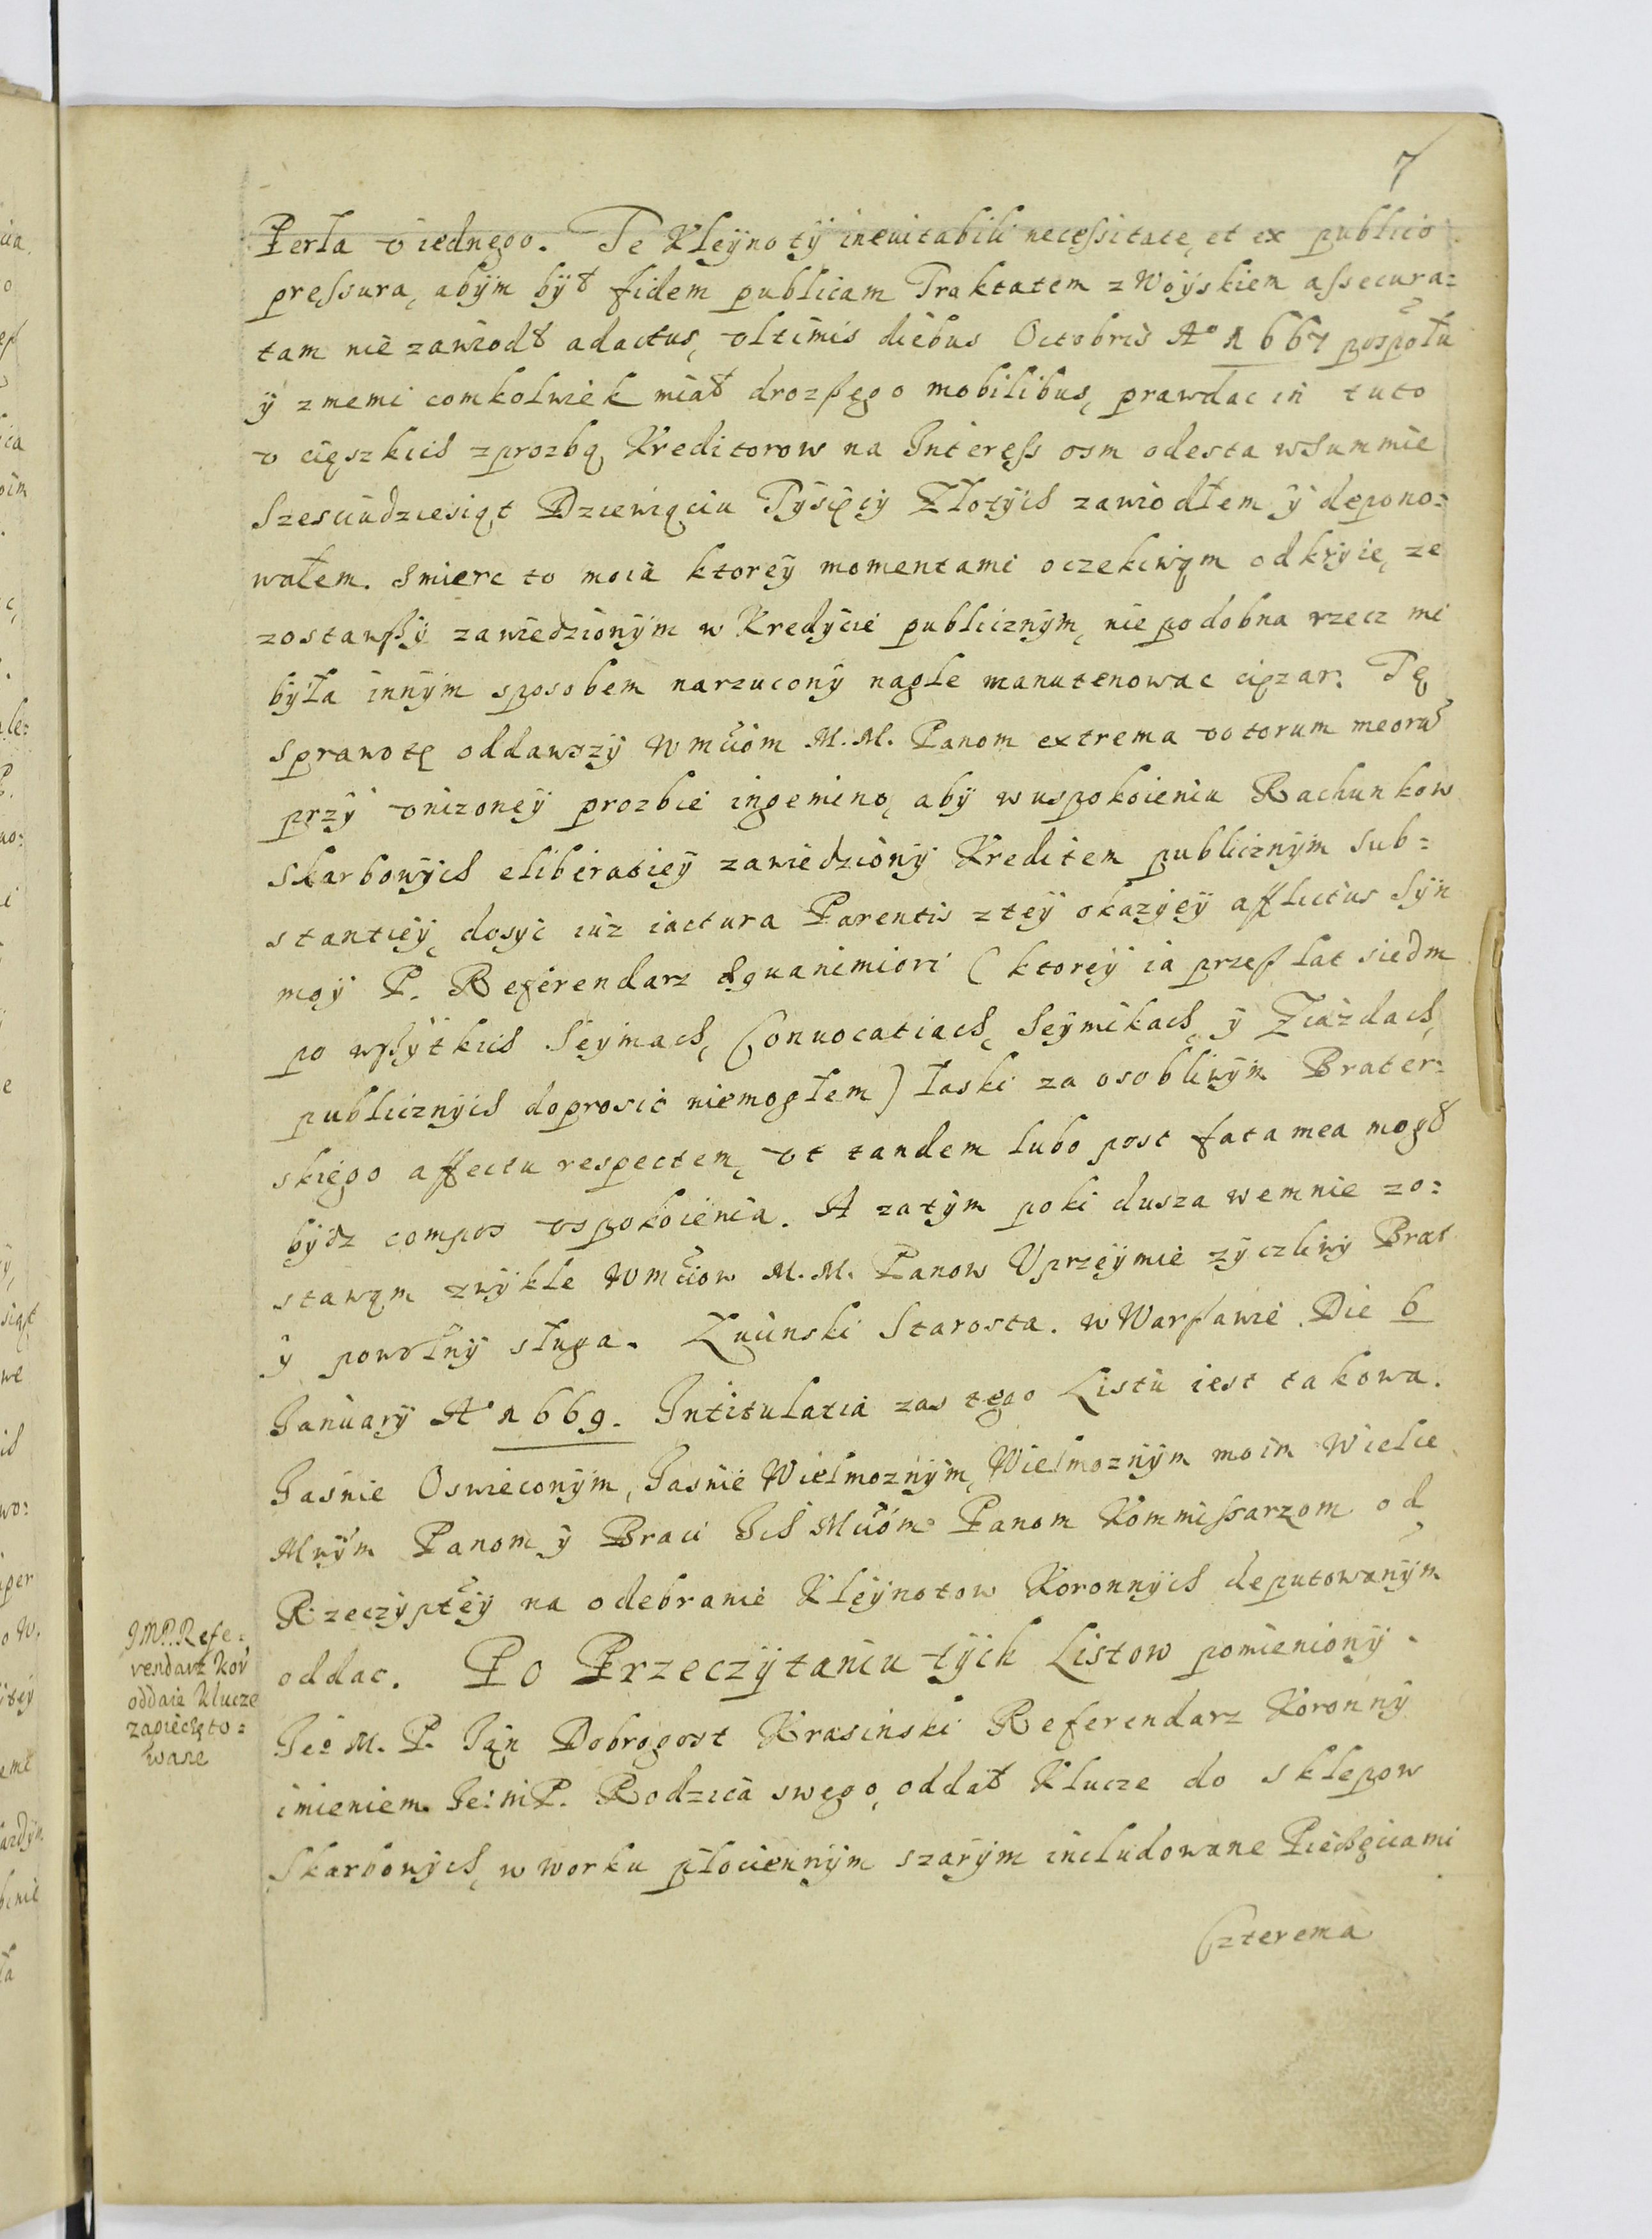 7
Perła v iednego. Te Kleÿnotÿ ineuitabili necessitate, et ex publico
pressura, abÿm bÿł fidem publicam Traktatem z Woÿskiem assecura=
tam nie zawiodł adactus, vltimis diebus Octobris A° 1667 pospołu
ÿ z memi comkolwiek miał drozszego mobilibus, prawda ci tuto
v cięszkich z prozbą Kreditorow na Interess osm odesta w Summie
Szesciudziesiąt Dziewiąciu Tÿsięcÿ Złotÿch zawiodłem ÿ depono=
wałem. Smierc to moia ktoreÿ momentami oczekiwąm odkrÿie, ze
zostawszÿ zawiedzionÿm w Kredÿcie publicznÿm, nie podobna rzecz mi
bÿła innÿm sposobem narzuconÿ nagle manutenowac cięzar. Tę
sprawotę oddawszÿ Wmciom M. M. Panom extrema votorum meorum
przÿ vnizoneÿ prozbie ingemino, abÿ w uspokoieniu Rachunkow
Skarbowÿch eliberatieÿ zawiedzionÿ Kreditem publicznÿm sub=
stantieÿ, dosyć iuz iactura Parentis z teÿ okazÿeÿ afflictus Sÿn
moÿ P. Referendarz Æquanimiori ( ktoreÿ ia przesz lat siedm
po wszÿtkich Seÿmach, Conuocatiach, Seÿmikach, ÿ Ziazdach,
publicznÿch doprosić niemogłem ) łaski za osobliwÿm Brater=
skiego affectu respectem, vt tandem lubo post fata mea mogł
bÿdz compos vspokoienia. A zatÿm poki dusza wemnie zo=
stawąm zwÿkle Wmciow M. M. Panow Vprzeÿmie zÿczliwÿ Brat
ÿ powolnÿ sługa. Łucinski Starosta. w Warszawie Die 6
Januarÿ A° 1669. Intitulatia zas tego Listu iest takowa.
Jasnie Oswieconÿm, Jasnie Wielmoznÿm, Wielmoznÿm moim Wielce
Mnÿm Panom ÿ Braci Ich Mciom Panom Kommissarzom od
Rzeczÿpteÿ na odebranie Kleÿnotow Koronnÿch deputowanÿm
oddac. Po Przeczÿtaniu tÿch Listow pomienionÿ
Jeo M. P. Jąn Dobrogost Krasinski Referendarz Koronnÿ
imieniem Je: m P. Rodzica swego, oddał Klucze do sklepow
Skarbowÿch, w worku płociennÿm szarÿm includowane Pieczęciami
Czterema
JMP. Refe=
rendarz Kor
oddaie Klucze
zapieczęto=
wane